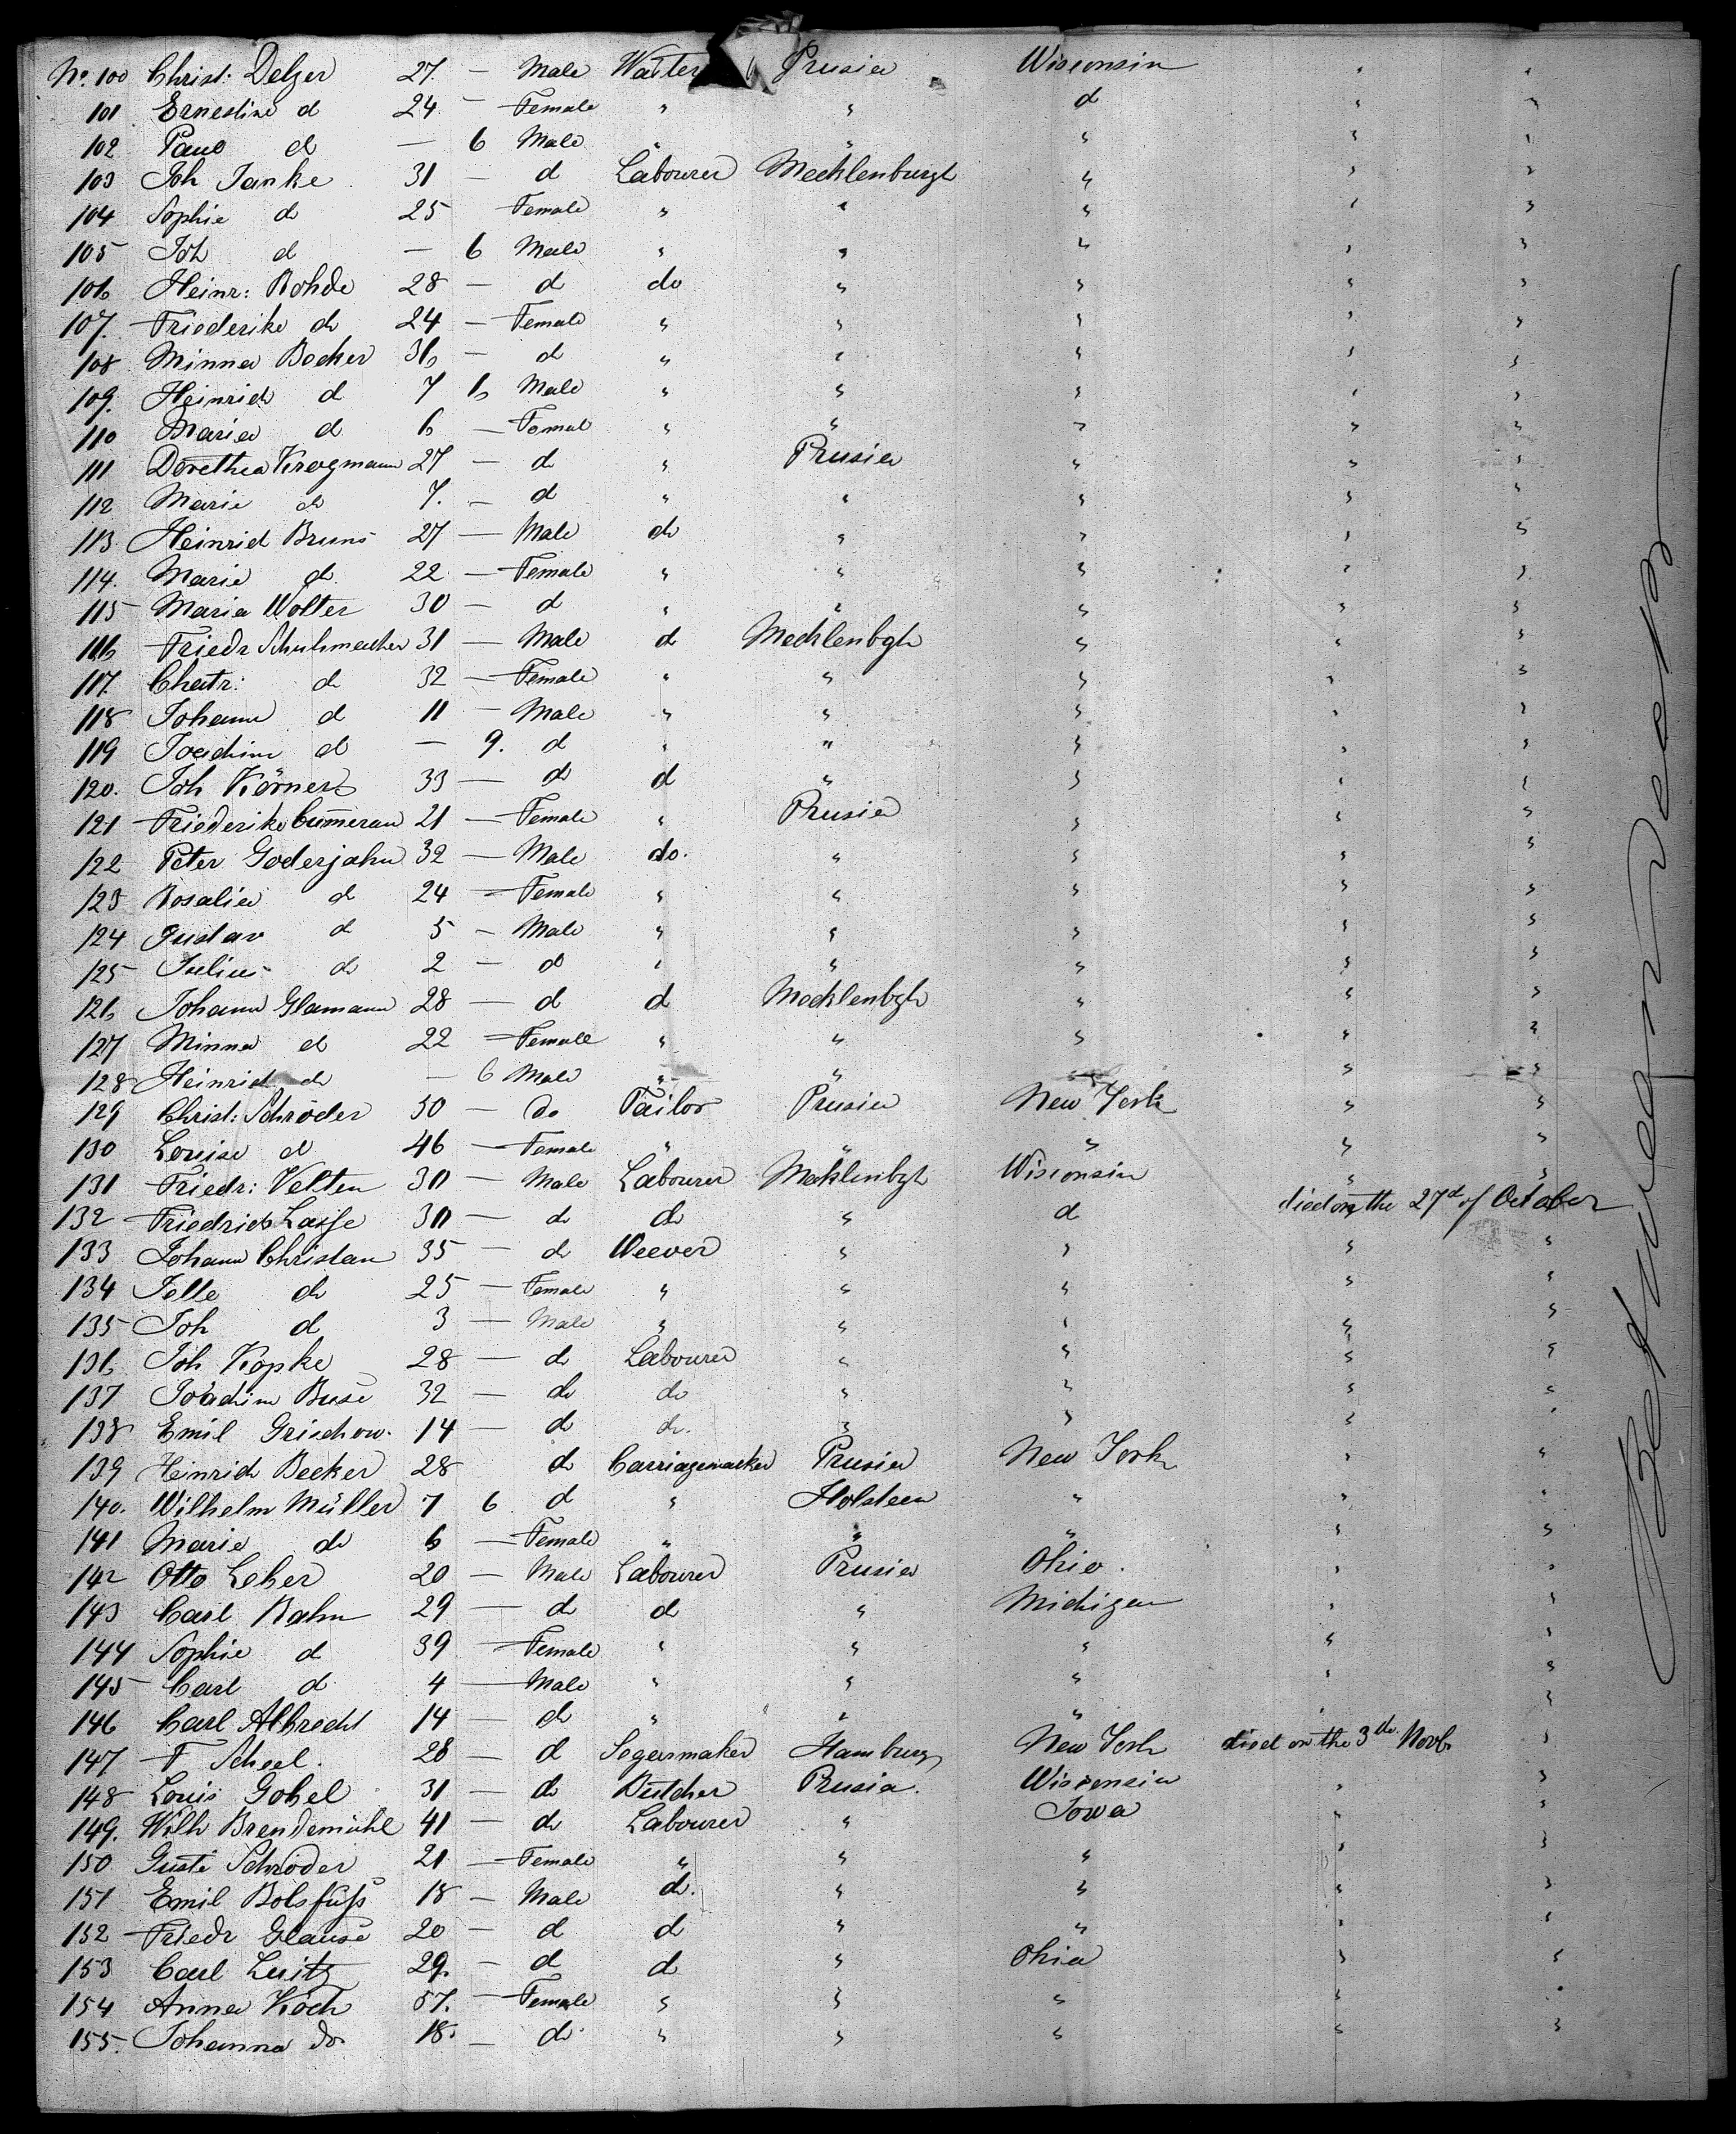 No. 100 Christ: Delzer 27. — Male Prusia Wisconsin " "
101 Ernestine d 24 — Female " " d " "
102 Paul d — 6 Male " " " " "
103 Joh Janke 31 — d Labourer Mecklenburgh " " "
104 Sophie d 25 Female " " " " "
105 Joh d — 6 Male " " " " "
106 Heinr: Rohde 28 — d do " " " "
107. Friederike do 24 — Female " " " " "
108 Minna Becker 36 — d " " " " "
109. Heinrich d 7 6 Male " " " " "
110 Maria d 6 — Femal " " " " "
111 Dorethea Krogmann 27 — d " Prusia " " "
112 Marie do 7. — d " " " " "
113. Heinrich Bruns 27 — Male do " " " "
114. Marie d. 22 — Female " " " " "
115 Maria Wolter 30 — d " " " " "
116 Friedr Schuhmacher 31 — Male d Mecklenbgh " " "
117. Chatr: d 32 — Female " " " " "
118 Johann d 11 — Male " " " " "
119 Joachim d — 9. d " " " " "
120. Joh Körner 33 — d d " " " "
121 Friederike Cum̄erau 21 — Female " Prusia " " "
122 Peter Goderjahn 32 — Male do. " " " "
123 Rosalia d 24 — Female " " " " "
124 Gustav d 5 — Male " " " " "
125 Julius d 2 — d " " " " "
126 Johann Glamann 28 — d d Mecklenbgh " " "
127 Minna d 22 — Female " " " " "
128 Heinrich d — 6 Male " " " " "
129 Christ: Schröder 50 — do Tailor Prusia New York " "
130 Louise d 46 — Female " " " " "
131 Friedr: Velten 30 — Male Labourer Mecklenbgh Wisconsin " "
132 Friedrich Lasse 30 — d do " d died on the 27d of October
133 Johann Christan 35 — d Weever " " " "
134 Jelle do 25 — Female " " " " "
135 Joh d 3 — Male " " " " "
136 Joh Kopke 28 — d Labourer " " " "
137 Joachim Buse 32 — do do " " " "
138 Emil Grischow. 14 — d do. " " " "
139 Heinrich Becker 28 d Carriagemarker Prusia New York " "
140. Wilhelm Müller 7 6 d " Holsteen " " "
141 Marie do 6 — Female " " " " "
142 Otto Leher 20 — Male Labourer Prusia Ohio. " "
143 Carl Rahn 29 — d d " Michigan " "
144 Sophie d 39 — Female " " " " "
145 Carl d 4 — Male " " " " "
146 Carl Albrecht 14 — d " " " " "
147 F Scheel. 28 — d Segarmaker Hamburg New York died on the 3th. Novb. "
148 Louis Gobel 31 — do Butcher Prusia. Wisconsin " "
149. Wilh Brendemühl 41 — do Labourer " Iowa " "
150 Guste Schröder 21 — Female " " " " "
151 Emil Bolsfuss 18 — Male d. " " " "
152 Friedr Glause 20 — d d " " " "
153 Carl Luitz 29. — d d " Ohio " "
154 Anna Koch 57. — Female " " " " "
155. Johanna do 18. — do " " " " "
Between Decks